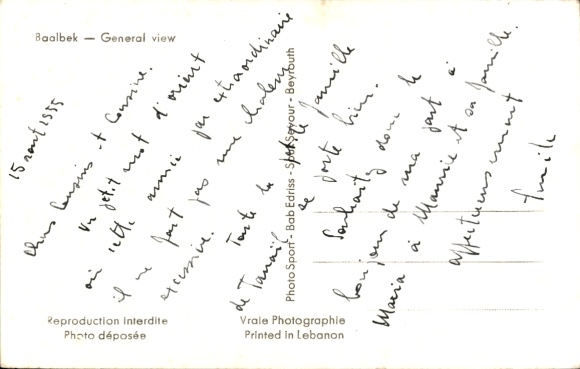 Baalbek — General view
15 août 1955
Chers Cousins et Cousine.
Un petit mot d'orient
où cette année par extraordinaire
il ne fait pas une chaleur
excessive.
Toute la petite famille
de Tanaïl se porte bien.
Souhaitez donc le
bonjour de ma part à
Maria à Maurice et sa famille.
affectueusement
Photo Sport - Bab Edriss - Souk Sayour - Beyrouth
Reproduction interdite
Photo déposée
Vraie Photographie
Printed in Lebanon